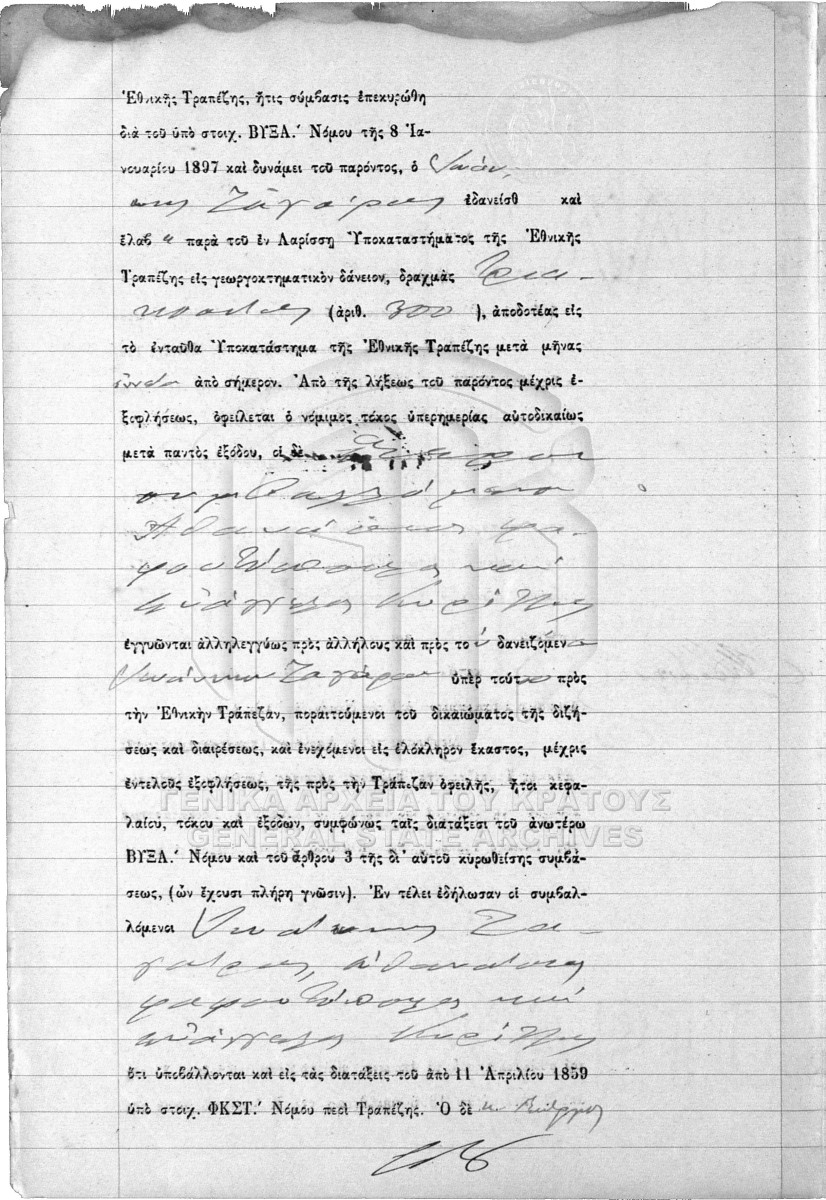 Ἐθνικῆς Τραπέζης, ἥτις σύμβασις ἐπεκυρώθη
διὰ τοῦ ὑπὸ στοιχ. ΒΥΞΑ.΄ Νόμου τῆς 8 Ἰα-
νουαρίου 1897 καὶ δυνάμει τοῦ παρόντος, ὁ Ἰωάν-
νης Ζάγαρας ἐδανείσθ καὶ
ἔλαβ ε παρὰ τοῦ ἐν Λαρίσσῃ Ὑποκαταστήματος τῆς Ἐθνικῆς
Τραπέζης εἰς γεωργοκτηματικὸν δάνειον, δραχμὰς Τρια-
κοσίας (ἀριθ. 300 ), ἀποδοτέας εἰς
τὸ ἐνταῦθα Ὑποκατάστημα τῆς Ἐθνικῆς Τραπέζης μετὰ μῆνας
ἐννέα ἀπὸ σήμερον. Ἀπὸ τῆς λήξεως τοῦ παρόντος μέχρις ἐ-
ξοφλήσεως, ὀφείλεται ὁ νόμιμος τόκος ὑπερημερίας αὐτοδικαίως
μετὰ παντὸς ἐξόδου, οἱ δὲ
συμβαλλόμενοι
Ἀθανάσιος
καὶ
Εὐάγγελος
ἐγγυῶνται ἀλληλεγγύως πρὸς ἀλλήλους καὶ πρὸς το ν δανειζόμενο ν
Ἰωάννην Ζαγάραν ὑπὲρ τούτ ου πρὸς
τὴν Ἐθνικὴν Τράπεζαν, παραιτούμενοι τοῦ δικαιώματος τῆς διζή-
σεως καὶ διαιρέσεως, καὶ ἐνεχόμενοι εἰς ὁλόκληρον ἕκαστος, μέχρις
ἐντελοῦς ἐξοφλήσεως, τῆς πρὸς τὴν Τράπεζαν ὀφειλῆς, ἤτοι κεφα-
ΓΕΝΙΚΑ ΑΡΧΕΙΑ ΤΟΥ ΚΡΑΤΟΥΣ
λαίου, τόκου καὶ ἐξόδων, συμφώνως ταῖς διατάξεσι τοῦ ἀνωτέρω
GENERAL STATE ARCHIVES
ΒΥΞΑ.΄ Νόμου καὶ τοῦ ἄρθρου 3 τῆς δι' αὐτοῦ κυρωθείσης συμβά-
σεως, (ὧν ἔχουσι πλήρη γνῶσιν). Ἐν τέλει ἐδήλωσαν οἱ συμβαλ-
λόμενοι Ἰωάννης Ζα-
γάρας, Ἀθανάσιος
καὶ
Εὐάγγελος
ὅτι ὑποβάλλονται καὶ εἰς τὰς διατάξεις τοῦ ἀπὸ 11 Ἀπριλίου 1859
ὑπὸ στοιχ. ΦΚΣΤ.΄ Νόμου περὶ Τραπέζης. Ὁ δὲ κ.